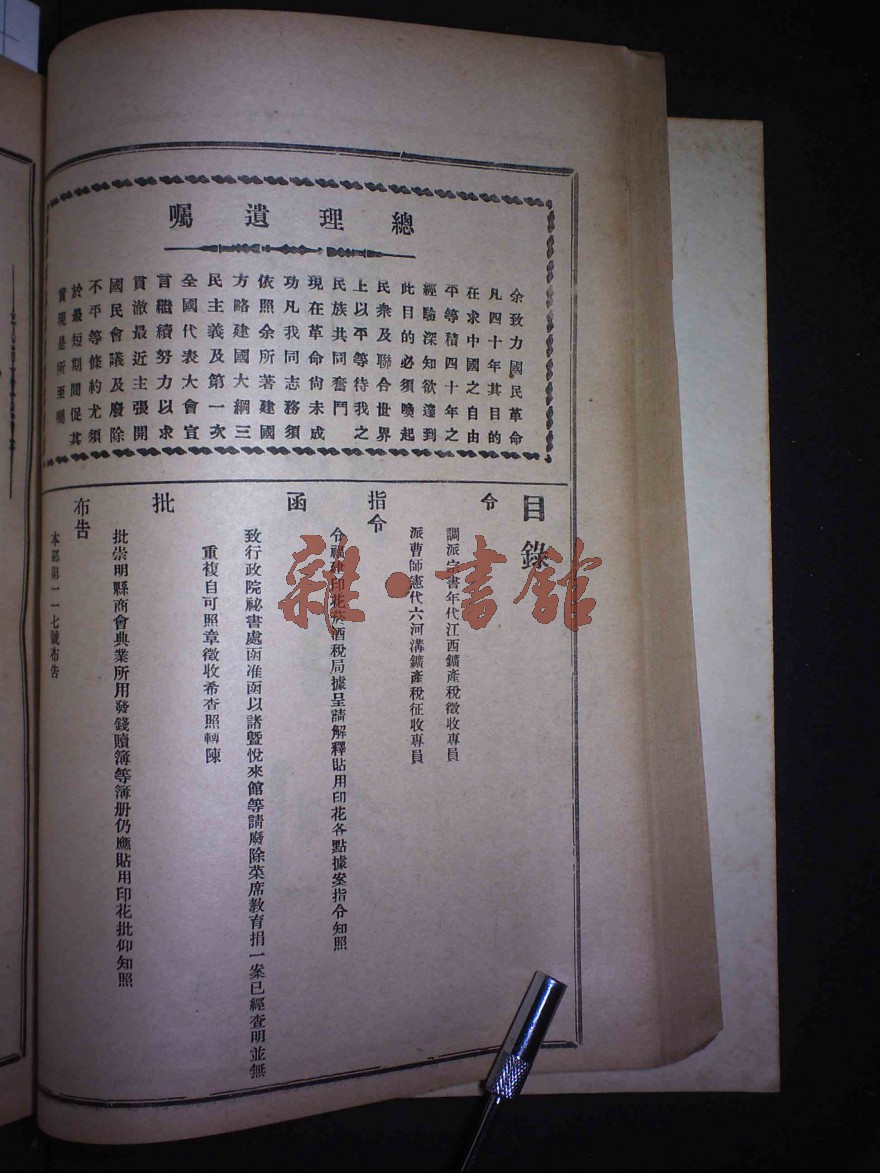 總理遺囑
余致力國民革命
凡四十年其目的
在求中國之自由
平等積四十年之
經驗深知欲達到
此目的必須喚起
民衆及聯合世界
上以平等待我之
民族共同奮鬥
現在革命尚未成
功凡我同志務須
依照余所著建國
方略建國大綱三
民主義及第一次
全國代表大會宣
言繼續努力以求
貫澈最近主張開
國民會議及廢除
不平等條約尤須
於最短期間促其
實現是所至囑
目錄
令
調派宗書年代江西鑛產稅徵收專員
派曹師憲代六河溝鑛產稅征收專員
指令
令福建印花菸酒稅局據呈請解釋貼用印花各點據案指令知照
函
致行政院祕書處函准函以諸暨悅來館等請廢除菜席教育捐一案已經查明並無
重複自可照章徵收希查照轉陳
批
批崇明縣商會典業所用發錢贖簿等簿册仍應貼用印花批仰知照
布告
本部第一一七號布告
雜·書館